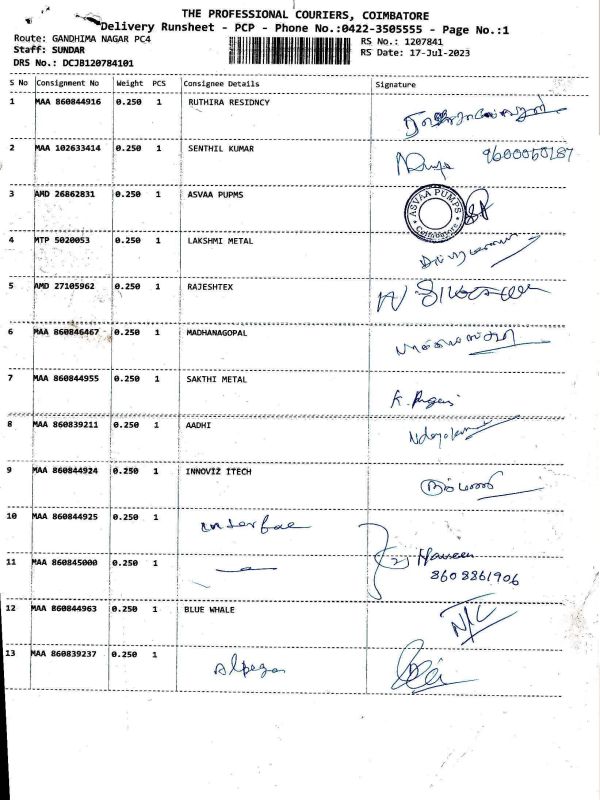 THE PROFESSIONAL COURIERS, COIMBATORE
Delivery Runsheet - PCP - Phone No.:0422-3505555 - Page No.:1
Route: GANDHIMA NAGAR PC4 RS No.: 1207841
Staff: SUNDAR RS Date: 17-Jul-2023
DRS No.: DCJB120784101
S No Consignment No Weight PCS Consignee Details Signature
1 MAA 860844916 0.250 1 RUTHIRA RESIDNCY
2 MAA 102633414 0.250 1 SENTHIL KUMAR
3 AMD 26862831 0.250 1 ASVAA PUPMS ASVAA PUMPS Coimbatore
4 MTP 5020053 0.250 1 LAKSHMI METAL
5 AMD 27105962 0.250 1 RAJESHTEX
6 MAA 860846467 0.250 1 MADHANAGOPAL
7 MAA 860844955 0.250 1 SAKTHI METAL
8 MAA 860839211 0.250 1 AADHI
9 MAA 860844924 0.250 1 INNOVIZ ITECH
10 MAA 860844925 0.250 1 interfae
11 MAA 860845000 0.250 1 (2) Naveen
8608861906
12 MAA 860844963 0.250 1 BLUE WHALE N/C
13 MAA 860839237 0.250 1